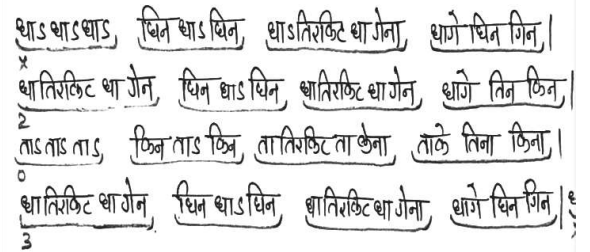 धाऽ धाऽ धाऽ, धिन धाऽ धिन, धाऽतिरकिट धा गेना, धागे धिन गिन,|
x
धातिरकिट धा गेन, धिन धाऽ धिन, धातिरकिट धा गेन, धागे तिन किन,|
2
ताऽ ताऽ ताऽ, किन ताऽ किन, तातिरकिट ता केना, ताके तिना किना,|
0
धातिरकिट धा गेन, धिन धाऽ धिन, धातिरकिट धा गेना, धागे धिन गिन,|
3
x